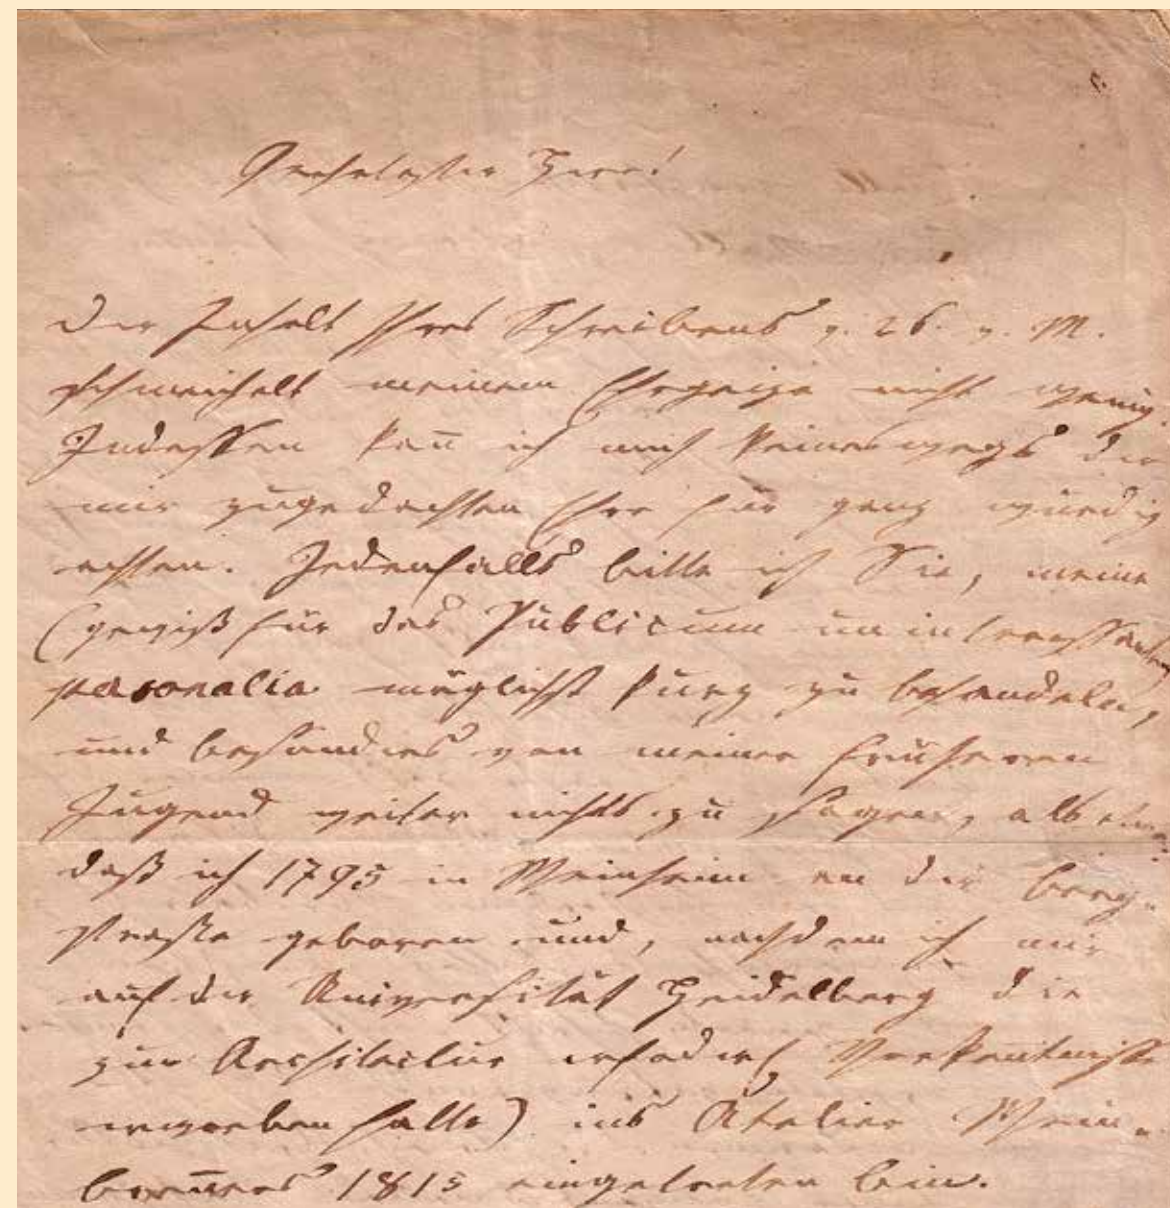 Verehrtester Herr!
Der Inhalt Ihres Schreibens v. 26. v. M.
schmeichelt meinem Ehrgeize nicht wenig.
Indessen kan̄ ich mich keineswegs der
mir zugedachten Ehre für ganz würdig
achten. Jedenfalls bitte ich Sie, meine
(gewiß für das Publicum uninteressanten
personalia möglichst kurz zu behandeln,
und besonders von meiner früheren
Jugend weiter nichts zu sagen, als
daß ich 1795 in Weinheim an der Berg-
straße geboren und, nachdem ich mir
auf der Universität Heidelberg die
zur Architectur erfoderl. Vorkentnisse
erworben hatte) ins Atelier Wein-
breñers 1815 eingetreten bin.